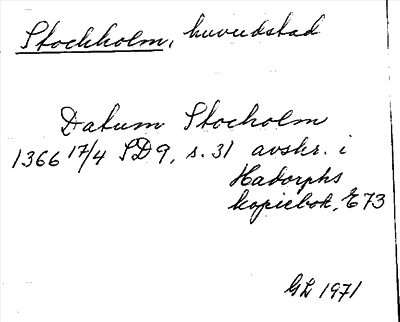 Stockholm, huvudstad
Datum Stocholm
1366 17/4 SD 9, s. 31 avskr. i
Hadorphs
kopiebok, E 73
GL 1971